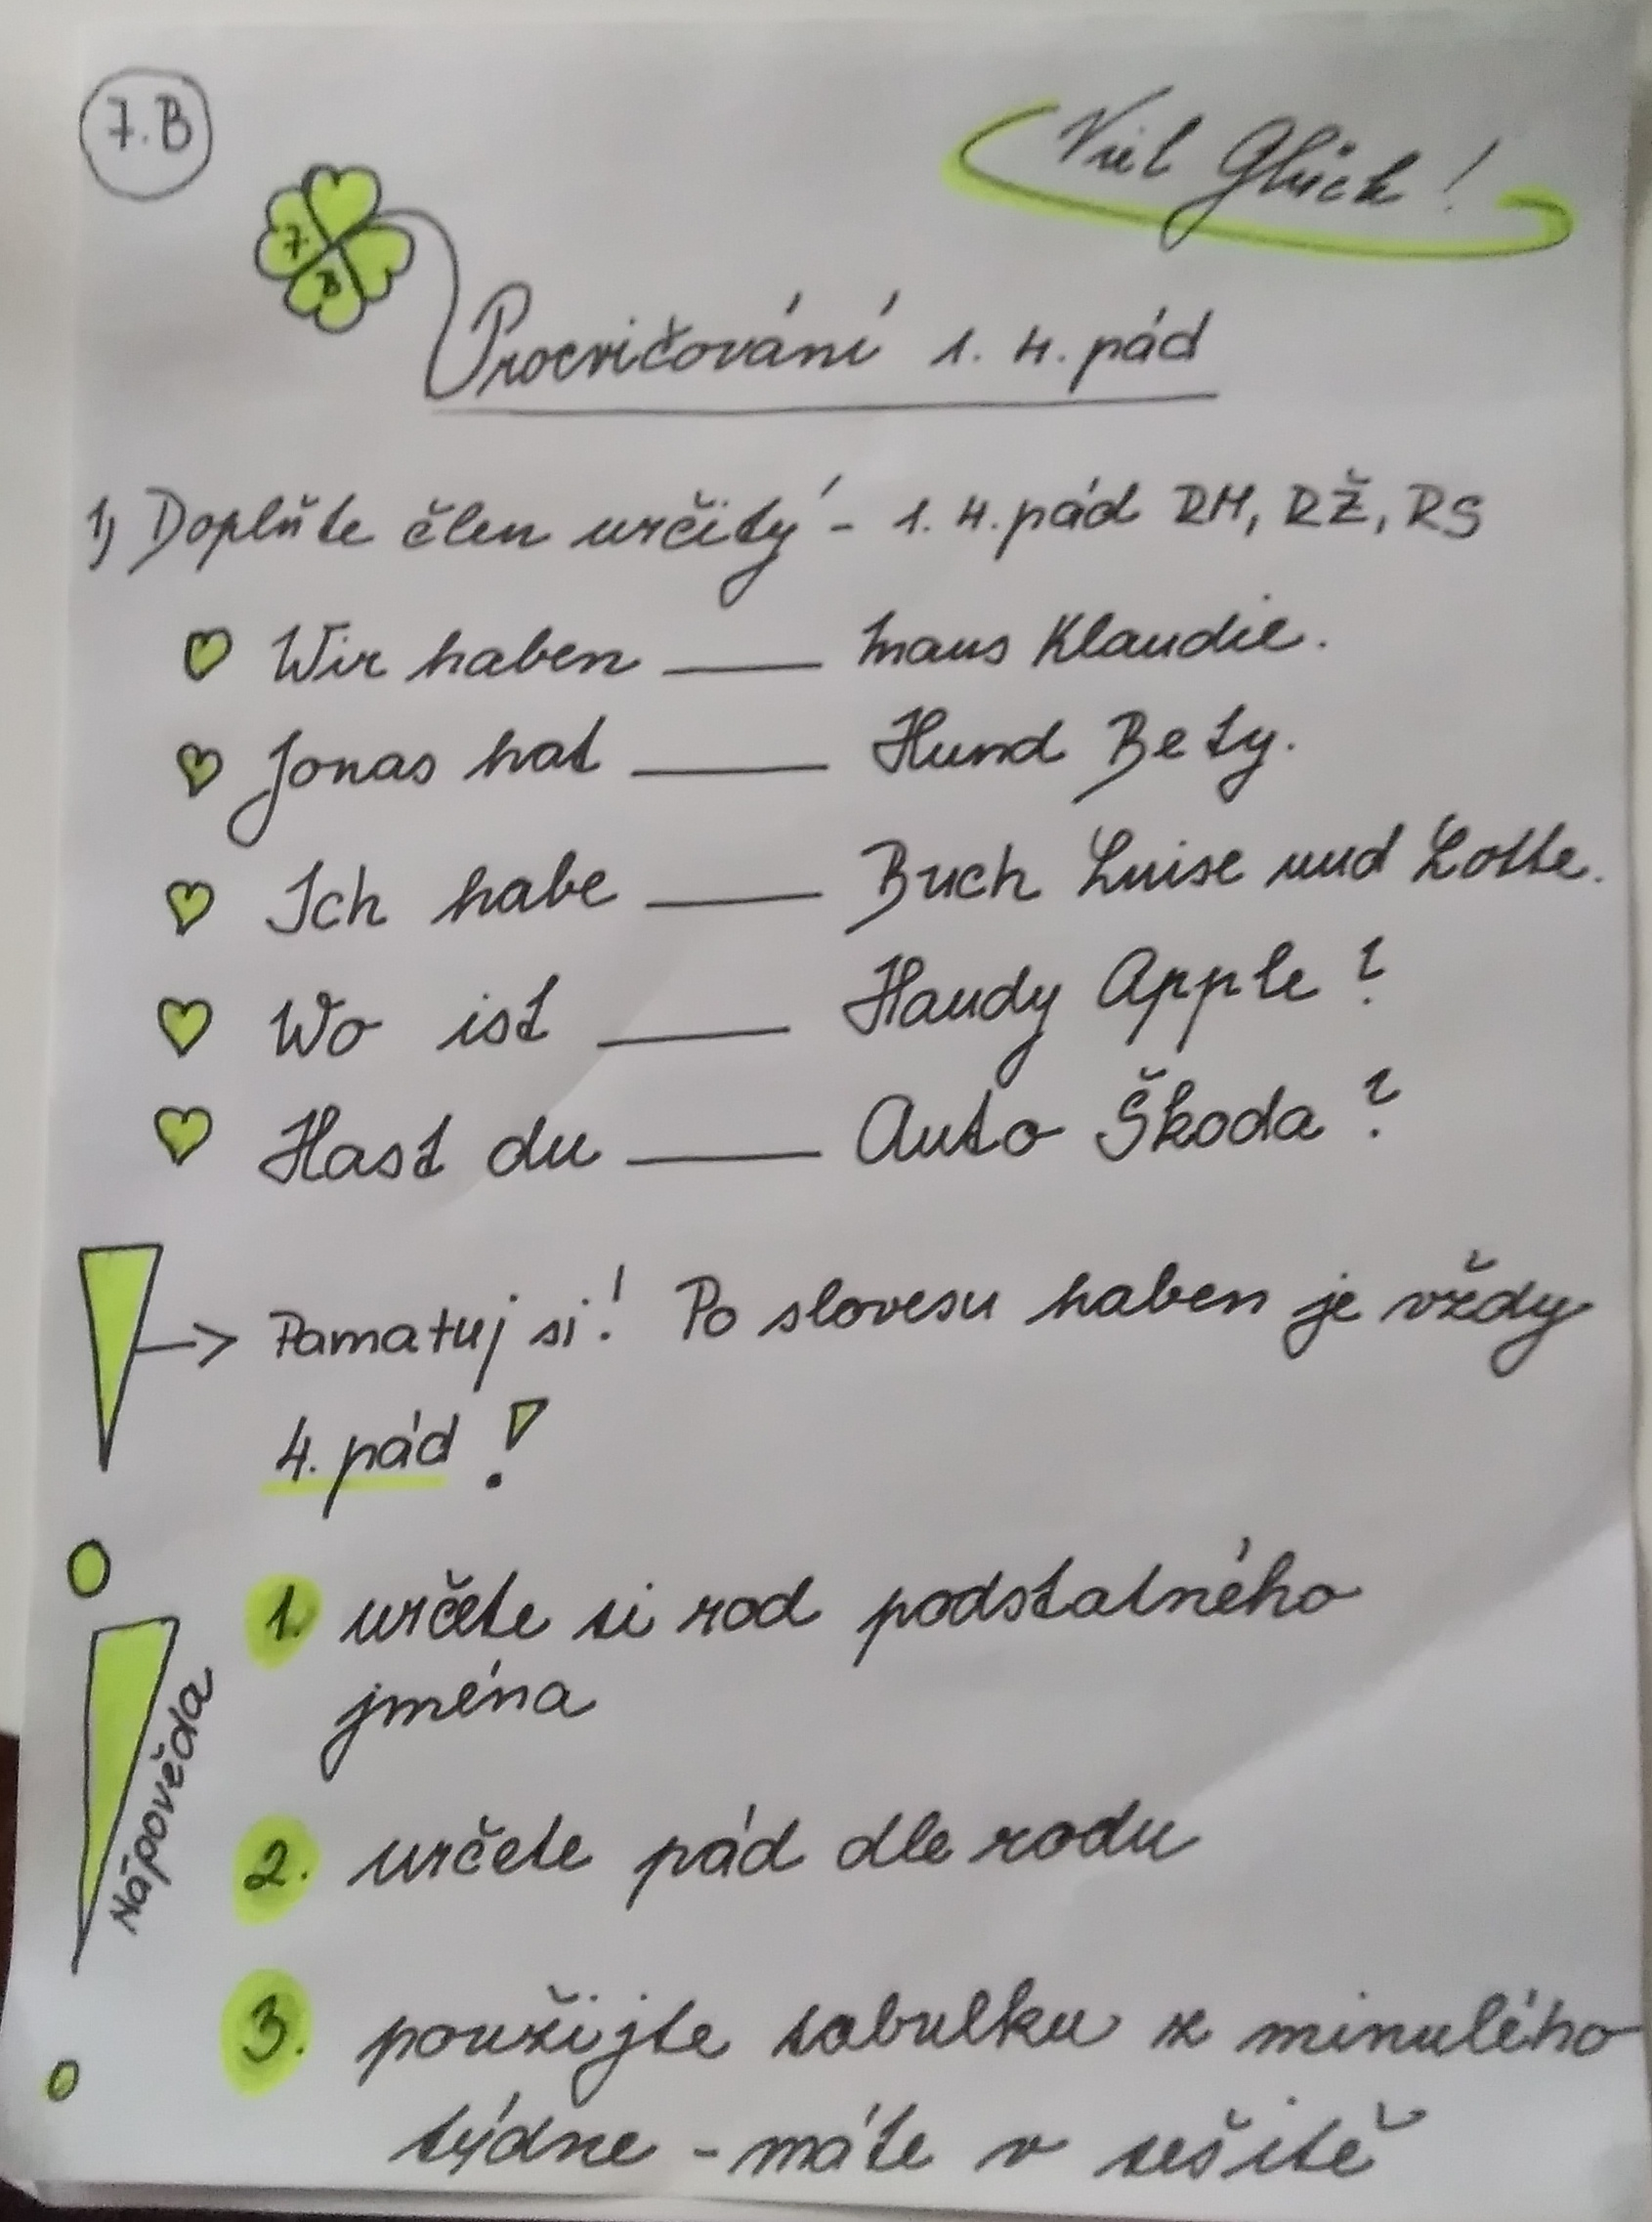 7.B
Viel Glück!
7. B
Procvičování 1. 4. pád
1) Doplňte člen určitý - 1. 4. pád RM, RŽ, RS
Wir haben ____ Maus Klaudie.
Jonas hat ____ Hund Bety.
Ich habe ____ Buch Luise und Lotte.
Wo ist ____ Handy Apple?
Hast du ____ Auto Škoda?
-> Pamatuj si! Po slovesu haben je vždy
4. pád!
Nápověda
1. určete si rod podstatného
jména
2. určete pád dle rodu
3. použijte tabulku z minulého
týdne - máte v sešitě